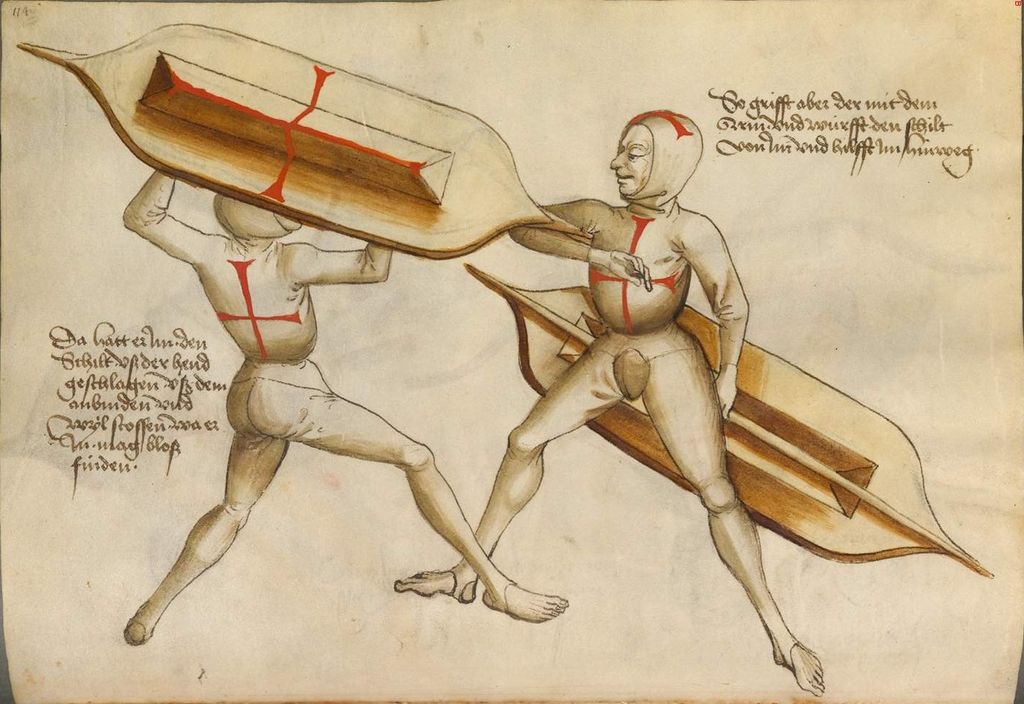 114
Da hatt er im den
Schilt vß der hend
geschlagen vß dem
anbinden vnd
wyl stossen wa er
In mag bloß
finden.
So grifft aber der mit dem
Arm vnd würfft den schilt
von im vnd hilfft im hinweg